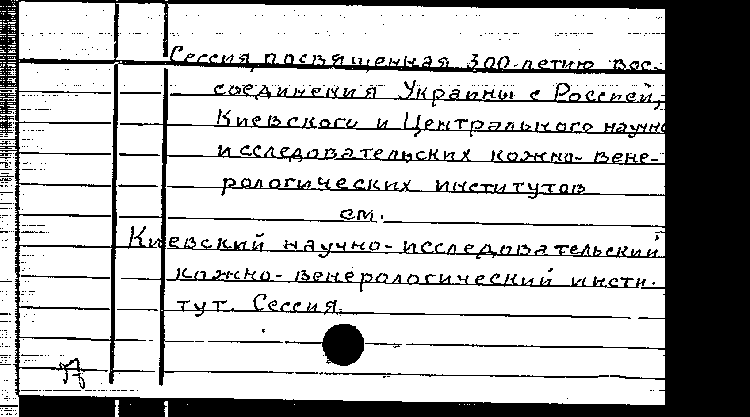 Сессия, посвященная 300-летию вос-
соединения Украины с Россией,
Киевского и Центрального научно
исследовательских кожно-вене-
рологических институтов
см.
Киевский научно-исследовательский
кожно-венерологический инсти-
тут. Сессия.